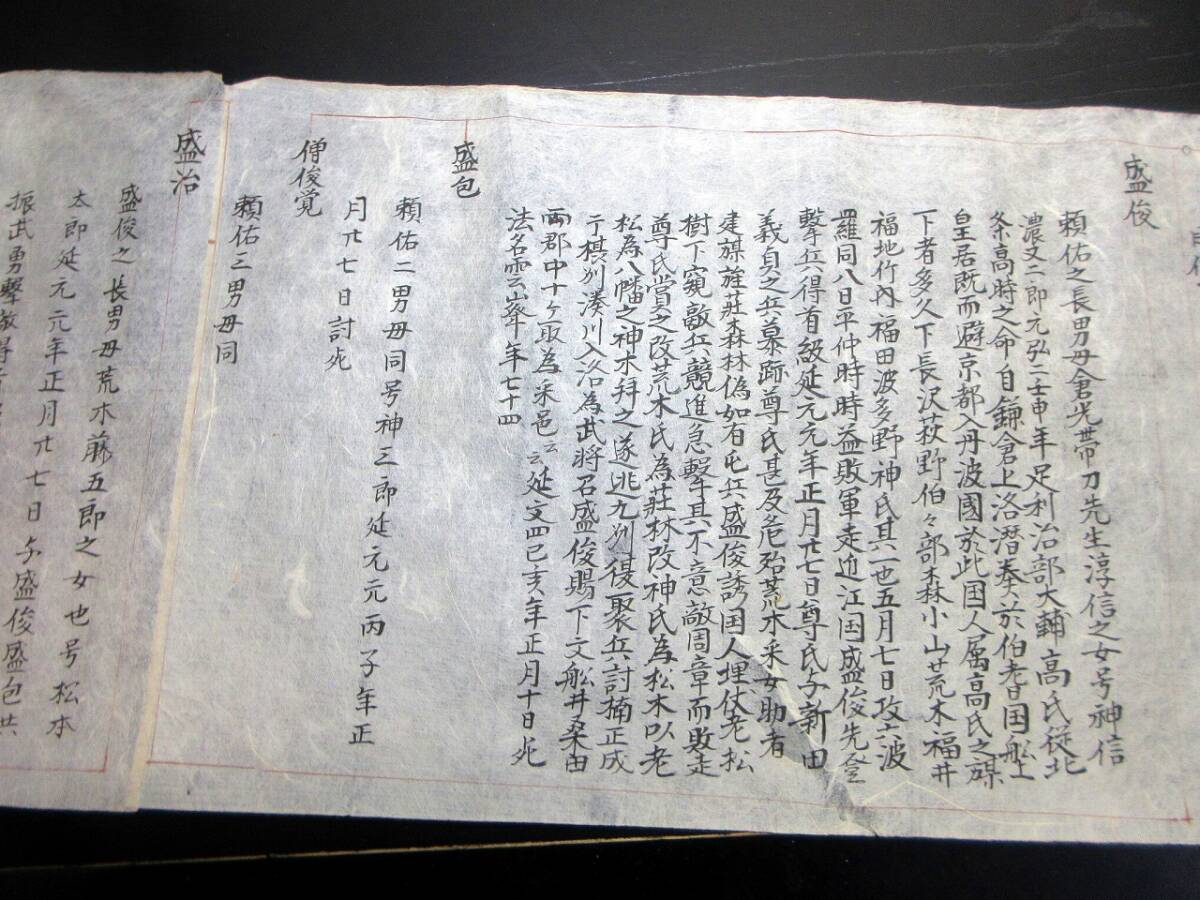 盛俊
頼佑之長男母倉光帯刀先生淳信之女号神信
濃又二郎元弘二壬申年足利治部大輔高氏従北
条高時之命自鎌倉上洛潜奏於伯耆国船上
皇居既而避京都入丹波國於此国人属高氏之旗
下者多久下長沢荻野伯々部森小山荒木福井
福地竹内福田波多野神氏其一也五月七日攻六波
羅同八日平仲時時益敗軍走近江国盛俊先登
撃兵得首級延元元年正月廿七日尊氏与新田
義貞之兵慕跡尊氏甚及危殆荒木采女助者
建旗旌荘森林偽如有屯兵盛俊誘国人埋伏老松
樹下窺敵兵競進急撃其不意敵周章而敗走
尊氏賞之改荒木氏為荘林改神氏為松木以老
松為八幡之神木拝之遂逃九州復聚兵討楠正成
于摂州湊川入洛為武将召盛俊賜下文船井桑田
両郡中十ヶ取為采邑云云延文四己亥年正月十日死
法名雲峯年七十四
盛包
頼佑二男母同号神三郎延元元丙子年正
月廿七日討死
僧俊覚
頼佑三男母同
盛治
盛俊之長男母荒木藤五郎之女也号松本
太郎延元元年正月廿七日与盛俊盛包共
振武勇撃敵得首